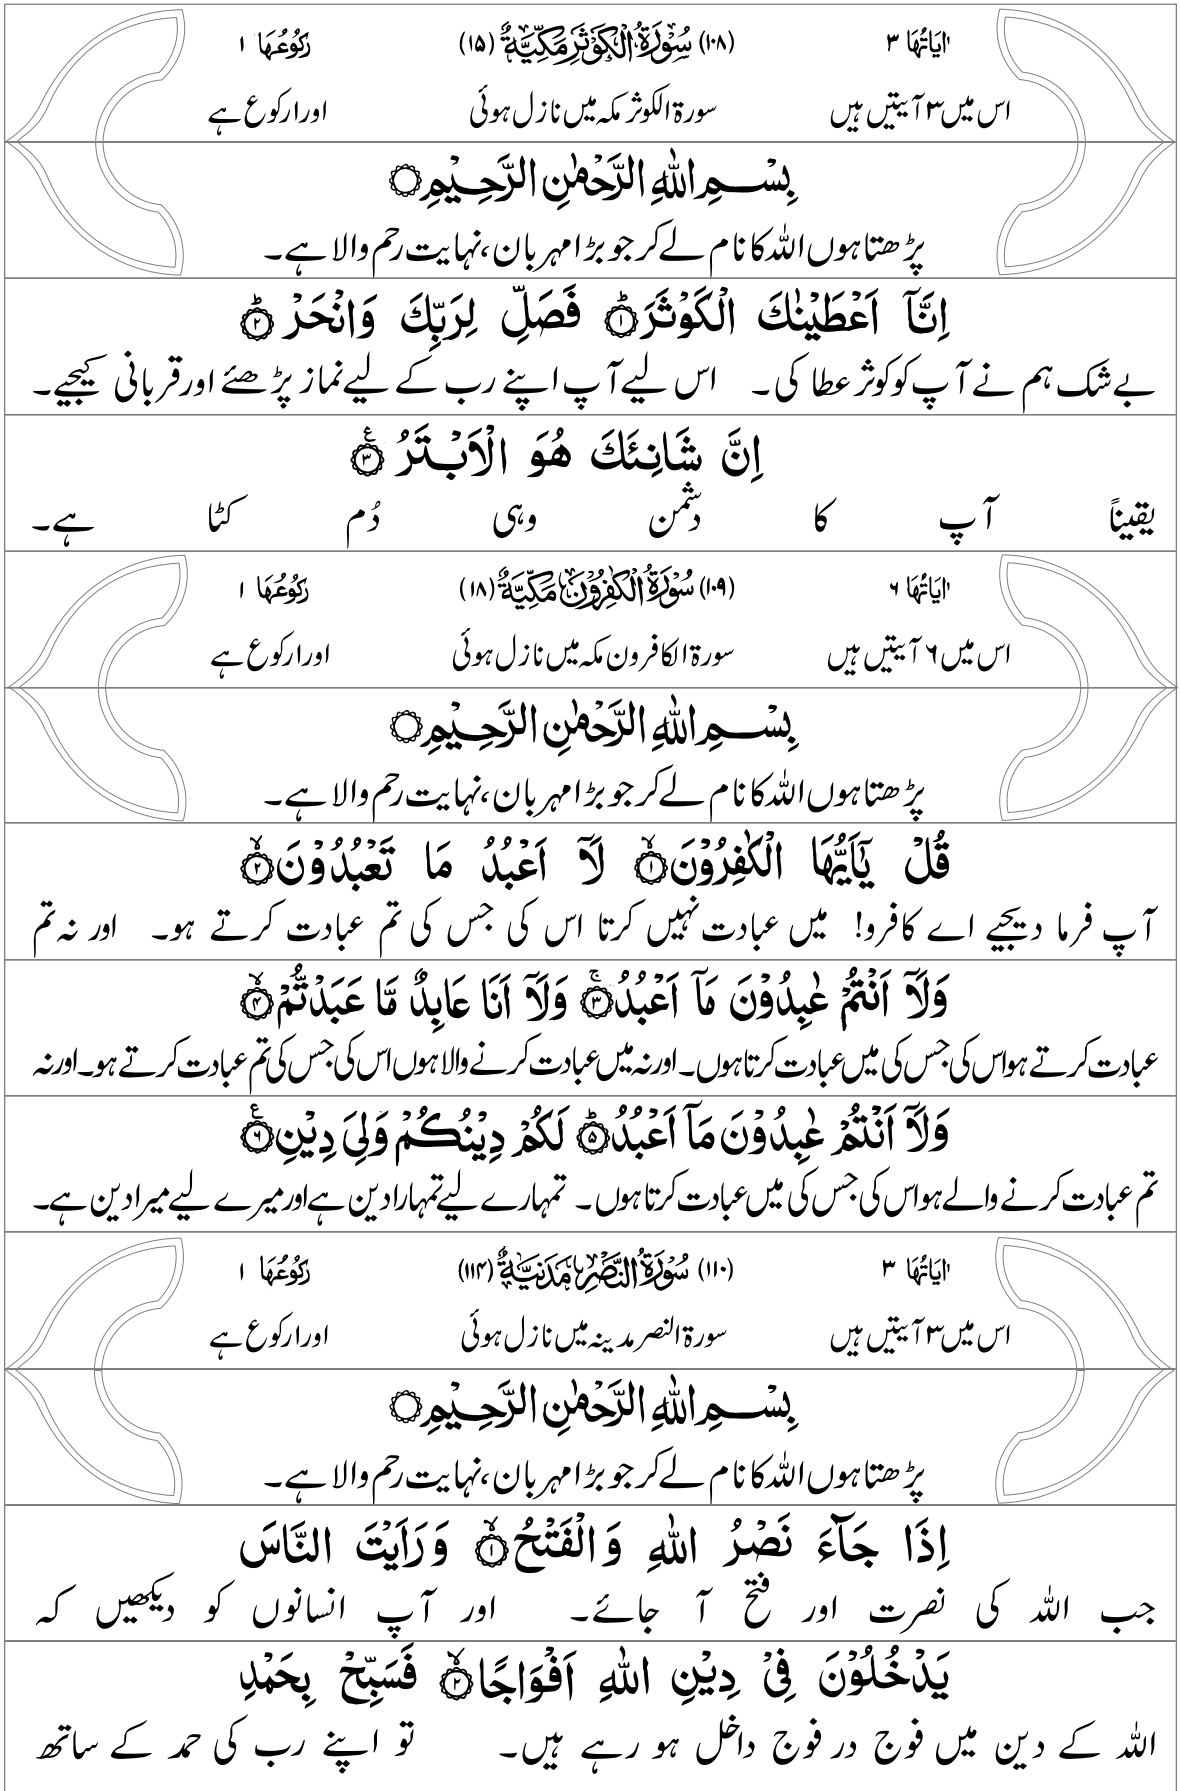 اٰيَاتُهَا ٣ (١٠٨) سُوْرَةُ الْكَوْثَرِ مَكِّيَّةٌ (١٥) رُكُوْعُهَا ١
اس میں ۳ آیتیں ہیں سورۃ الکوثر مکہ میں نازل ہوئی اور ا رکوع ہے
بِسْمِ اللّٰهِ الرَّحْمٰنِ الرَّحِيْمِ۝
پڑھتا ہوں اللہ کا نام لے کر جو بڑا مہربان، نہایت رحم والا ہے۔
اِنَّاۤ اَعْطَيْنٰكَ الْكَوْثَرَؕ۝١ فَصَلِّ لِرَبِّكَ وَانْحَرْؕ۝٢
بے شک ہم نے آپ کو کوثر عطا کی۔ اس لیے آپ اپنے رب کے لیے نماز پڑھئے اور قربانی کیجیے۔
اِنَّ شَانِئَكَ هُوَ الْاَبْتَرُ۝٣ۧ
یقیناً آپ کا دشمن وہی دُم کٹا ہے۔
اٰيَاتُهَا ٦ (١٠٩) سُوْرَةُ الْكٰفِرُوْنَ مَكِّيَّةٌ (١٨) رُكُوْعُهَا ١
اس میں ۶ آیتیں ہیں سورۃ الکافرون مکہ میں نازل ہوئی اور ا رکوع ہے
بِسْمِ اللّٰهِ الرَّحْمٰنِ الرَّحِيْمِ۝
پڑھتا ہوں اللہ کا نام لے کر جو بڑا مہربان، نہایت رحم والا ہے۔
قُلْ يٰۤاَيُّهَا الْكٰفِرُوْنَۙ۝١ لَاۤ اَعْبُدُ مَا تَعْبُدُوْنَۙ۝٢
آپ فرما دیجیے اے کافرو! میں عبادت نہیں کرتا اس کی جس کی تم عبادت کرتے ہو۔ اور نہ تم
وَلَاۤ اَنْتُمْ عٰبِدُوْنَ مَاۤ اَعْبُدُۚ۝٣ وَلَاۤ اَنَا عَابِدٌ مَّا عَبَدْتُّمْۙ۝٤
عبادت کرتے ہو اس کی جس کی میں عبادت کرتا ہوں۔ اور نہ میں عبادت کرنے والا ہوں اس کی جس کی تم عبادت کرتے ہو۔ اور نہ
وَلَاۤ اَنْتُمْ عٰبِدُوْنَ مَاۤ اَعْبُدُؕ۝٥ لَكُمْ دِيْنُكُمْ وَلِيَ دِيْنِ۝٦ۧ
تم عبادت کرنے والے ہو اس کی جس کی میں عبادت کرتا ہوں۔ تمہارے لیے تمہارا دین ہے اور میرے لیے میرا دین ہے۔
اٰيَاتُهَا ٣ (١١٠) سُوْرَةُ النَّصْرِ مَدَنِيَّةٌ (١١٤) رُكُوْعُهَا ١
اس میں ۳ آیتیں ہیں سورۃ النصر مدینہ میں نازل ہوئی اور ا رکوع ہے
بِسْمِ اللّٰهِ الرَّحْمٰنِ الرَّحِيْمِ۝
پڑھتا ہوں اللہ کا نام لے کر جو بڑا مہربان، نہایت رحم والا ہے۔
اِذَا جَآءَ نَصْرُ اللّٰهِ وَالْفَتْحُۙ۝١ وَرَاَيْتَ النَّاسَ
جب اللہ کی نصرت اور فتح آ جائے۔ اور آپ انسانوں کو دیکھیں کہ
يَدْخُلُوْنَ فِيْ دِيْنِ اللّٰهِ اَفْوَاجًاۙ۝٢ فَسَبِّحْ بِحَمْدِ
اللہ کے دین میں فوج در فوج داخل ہو رہے ہیں۔ تو اپنے رب کی حمد کے ساتھ